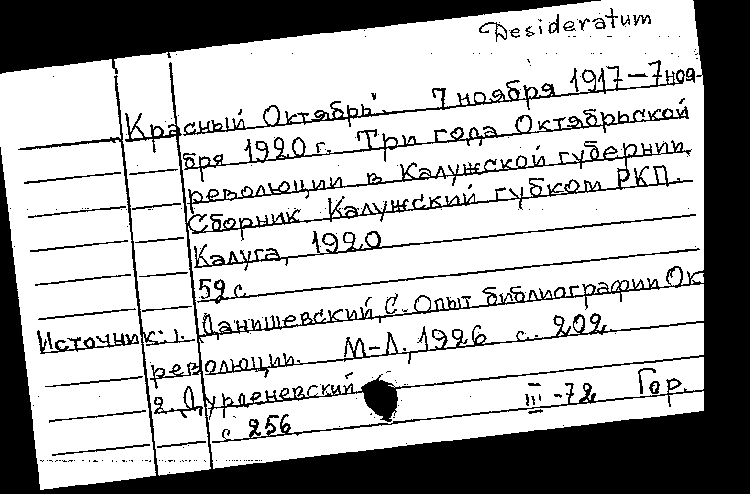 Desideratum
"Красный Октябрь". 7 ноября 1917-7 ноя-
бря 1920 г. Три года Октябрьской
революции в Калужской губернии.
Сборник. Калужский губком РКП.
Калуга, 1920
52 с.
Источник: 1. Данишевский, С. Опыт библиографии Окт
революции. М-Л., 1926 с. 202.
2. Дурденевский
с 256.
III-72 Гор.